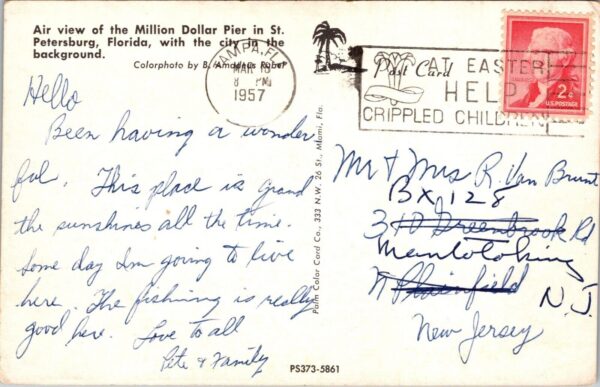 Air view of the Million Dollar Pier in St.
Petersburg, Florida, with the city in the
background.
Colorphoto by B. Amadeus Rubel
TAMPA, FLA
MAR 18
8 PM
1957
Post Card
AT EASTER
HELP
CRIPPLED CHILDREN
2¢
U.S. POSTAGE
Hello
Been having a wonder
ful. This place is grand
the sunshines all the time.
Some day Im going to live
here. The fishining is really
good here. Love to all
Pete & Family
Palm Color Card Co., 333 N.W. 26 St., Miami, Fla.
Mr & Mrs R. Van Brunt
BX 128
310 Greenbrook Rd
Mantoloking
N Plainfield
N.J.
New Jersey
PS373-5861